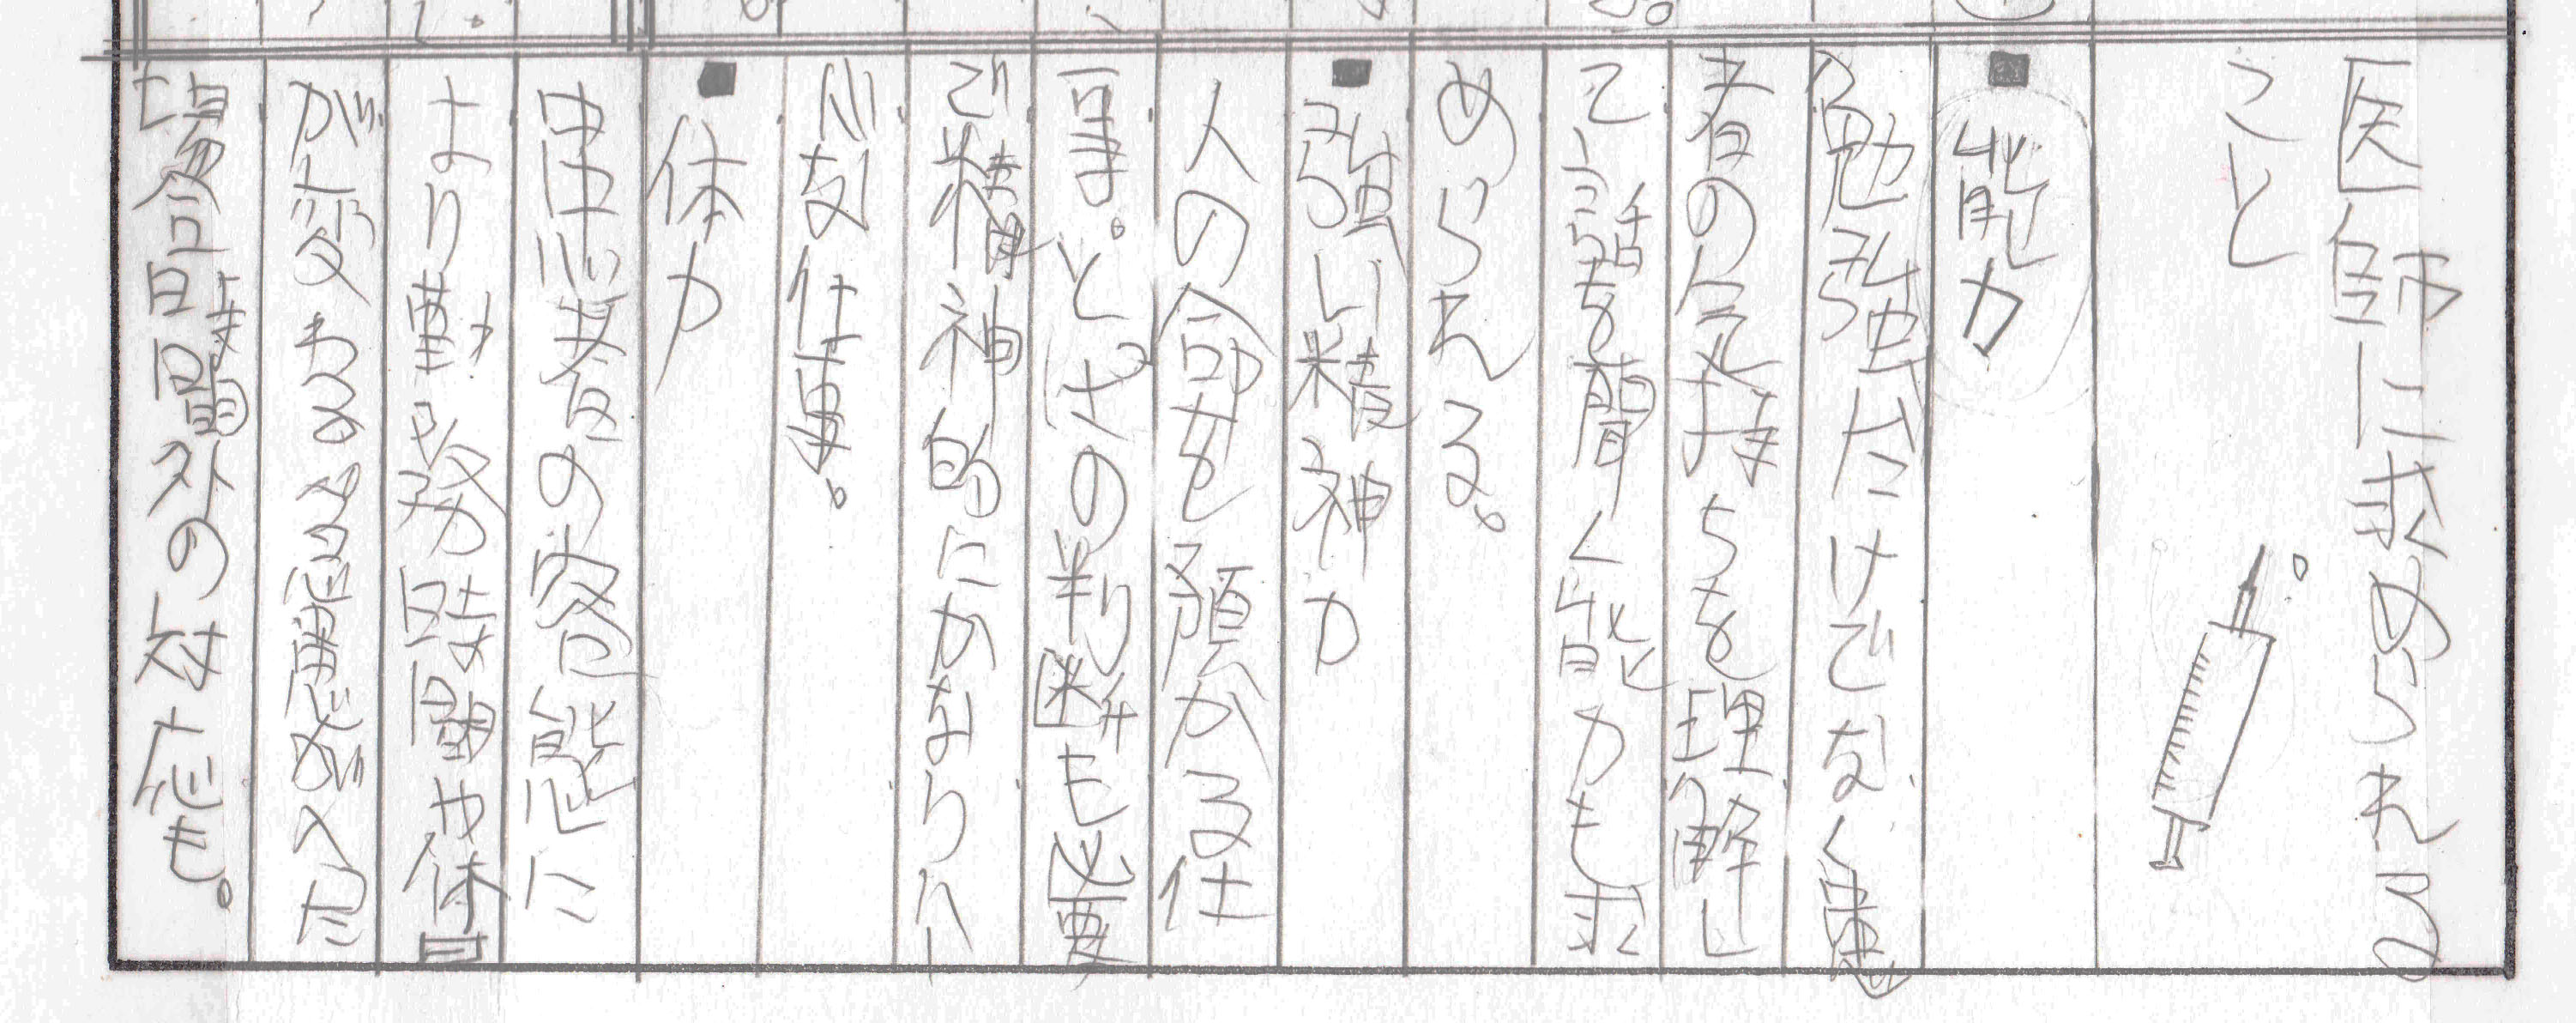 医師に求められる
こと
■能力
勉強だけでなく患
者の気持ちを理解し
て話を聞く能力も求
められる。
■強い精神力
人の命を預かる仕
事。とっさの判断も必要
で精神的にかなりハー
ドな仕事。
■体力
患者の容態に
より勤務時間や休日
が変わる。急患が入った
場合時間外の対応も。